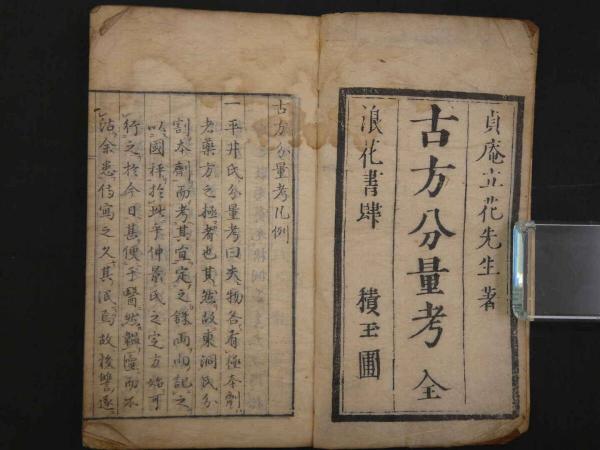 貞庵立花先生著
古方分量考 全
浪花書肆 積玉圃
古方分量考凡例
一平井氏分量考曰夫物各有極本劑
者藥方之極者也其然故東洞氏分
割本劑而考其宜定之銖兩而記之
以國秤於此乎仲景氏之定方始可
行之於今日甚便乎醫然韞匵而不
沽余悉傳寫之久其泯焉故後讐逐